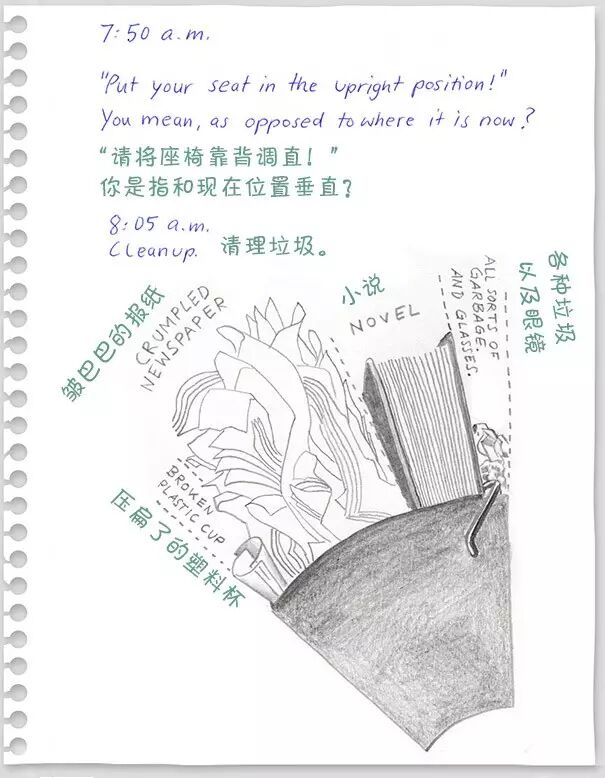 7:50 a.m.
"Put your seat in the upright position!"
You mean, as opposed to where it is now?
“请将座椅靠背调直！”
你是指和现在位置垂直？
8:05 a.m.
Cleanup. 清理垃圾。
皱巴巴的报纸
CRUMPLED
NEWSPAPER
小说
NOVEL
ALL SORTS OF
GARBAGE.
AND GLASSES.
各种垃圾
以及眼镜
BROKEN
PLASTIC CUP
压扁了的塑料杯